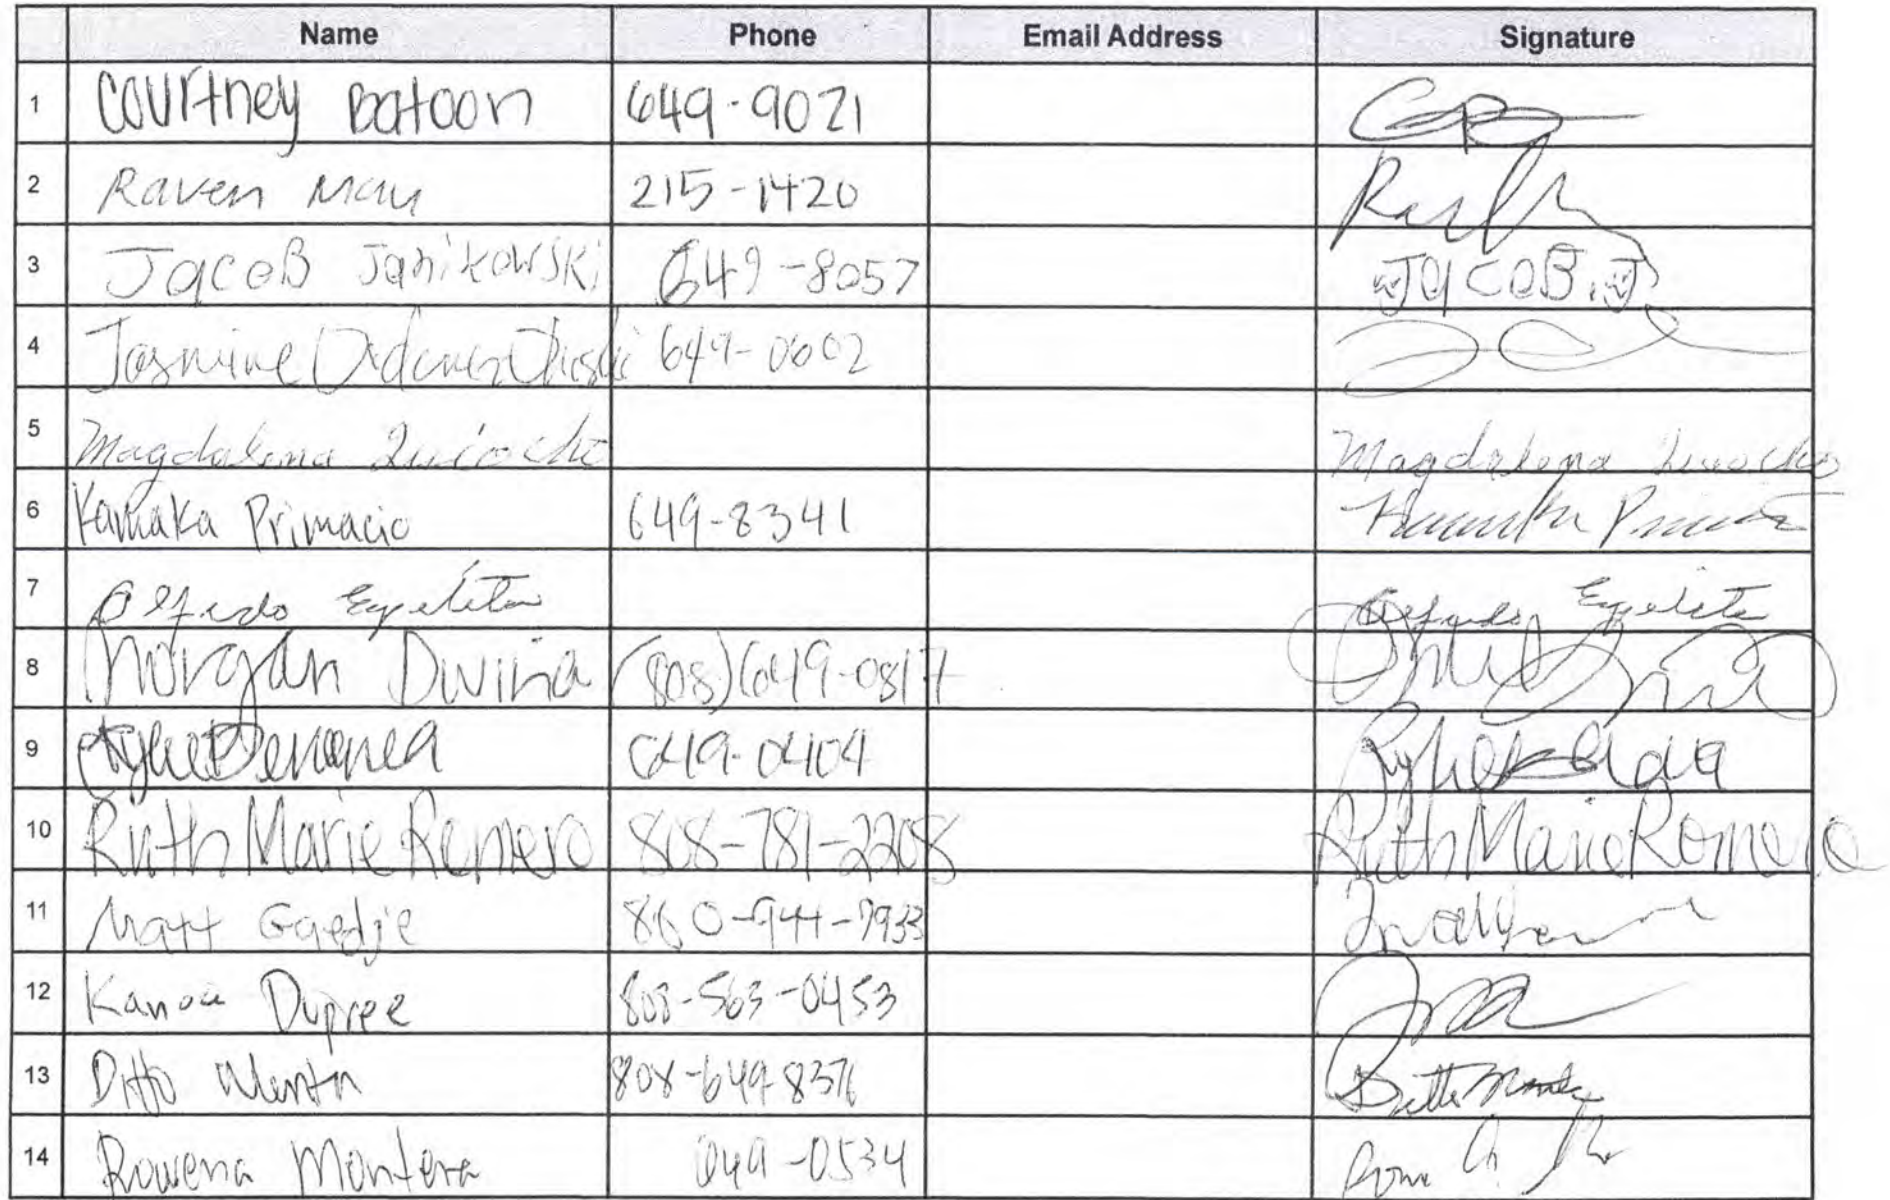 Name Phone Email Address Signature
1 Courtney Batoon 649-9021
2 Raven May 215-1420
3 JacoB Janikowski 649-8057 JacoB.J
4 Jasmine 649-0602
5 Magdalena Quiocho Magdalena Quiocho
6 Kamaka Primacio 649-8341
7 Alfredo Espeleta Alfredo Espeleta
8 Morgan Divina (808)649-0817
9 649-0404
10 Ruth Marie Romero 808-781-2208 Ruth Marie Romero
11 Matt Gaedje 860-944-7933
12 Kanoa Dupree 808-563-0453
13 Ditto 808-649-8376
14 Rowena Montera 649-0534